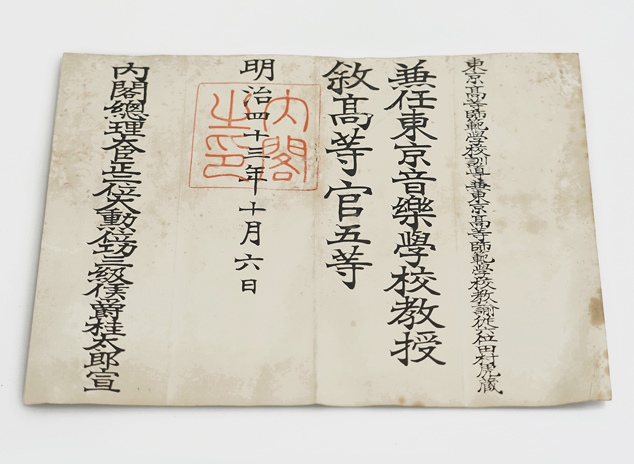 東京高等師範學校訓導兼東京高等師範學校教諭從六位田村虎藏
兼任東京音樂學校教授
敘高等官五等
明治四十三年十月六日
內閣之印
內閣總理大臣正二位大勳位功三級侯爵桂太郎宣